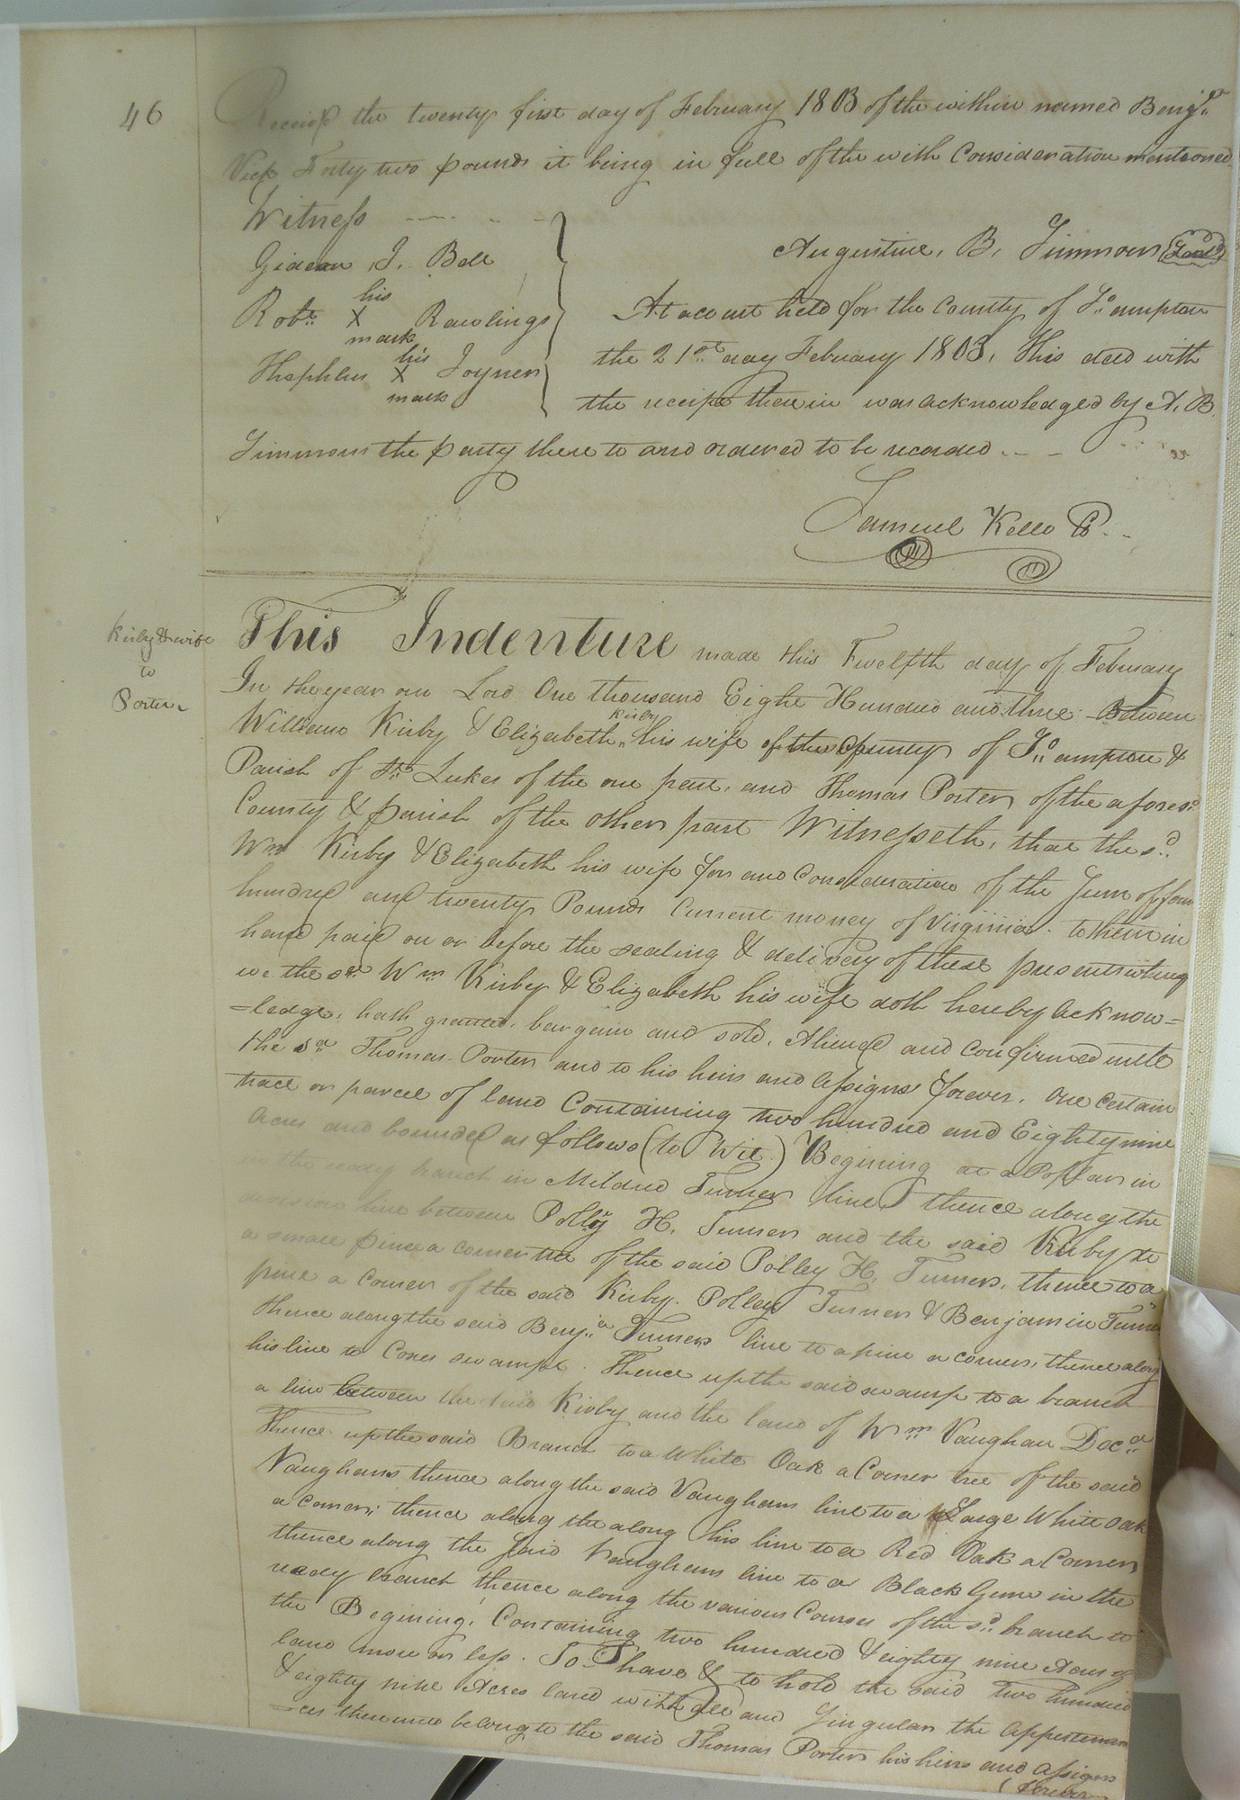 46
Received the twenty first day of February 1803 of the within named Benj.a
Vick Forty two pounds it being in full of the with Consideration mentioned
Witness
Augustine. B. Simmons (Seal)
Gideon J. Bell
Robt. his X mark Rawlings
Stephen his X mark Joyner
At a court held for the County of So.ampton
the 21st day February 1803. This deed with
the receipt therein was acknowledged by A. B.
Simmons the party there to and ordered to be recorded
Samuel Kello C.
Kirby & wife
to
Porter
This Indenture made this Twelfth day of February
In the year our Lord One thousand Eight Hundred and three Between
William Kirby & Elizabeth Kirby his wife of the County of So.ampton &
Parish of St. Lukes of the one part, and Thomas Porter of the afores.d
County & parish of the other part Witnesseth, that the s.d
Wm Kirby & Elizabeth his wife for and Consideration of the Sum of four
hundred and twenty Pounds Current money of Virginia to them in
hand paid on or before the sealing & delivery of these presents
we the sd. Wm Kirby & Elizabeth his wife doth hereby acknow=
=ledge, hath granted, bargain and sold, Aliened and confirmed unto
the sd Thomas Porter and to his heirs and assigns forever. One certain
tract or parcel of land Containing two hundred and Eighty nine
Acres and bounded as follows (to Wit.) Begining at a Poplar in
the reedy branch in Mildred Turners line thence along the
division line between Polly H. Turner and the said Kirby to
a small pine a corner tree of the said Polley H. Turners, thence to a
pine a Corner of the said Kirby. Polley Turner & Benjamin Turner
thence along the said Benj.a Turners line to a pine a corner, thence along
his line to Cones swamp. Thence up the said swamp to a branch
a line between the said Kirby and the land of Wm Vaughan Dec.d
Thence up the said Branch to a White Oak a Corner tree of the said
Vaughans thence along the said Vaughans line to a Large White Oak
a corner; thence along the along his line to a Red Oak a Corner
thence along the said Vaughans line to a Black Gum in the
reedy branch thence along the various Courses of the s.d branch to
the Begining. Containing two hundred & eighty nine Acres of
land more or less. To have & to hold the said Two hundred
& eighty nine Acres land with all and Singular the appurtenan
=ces thereunto belong to the said Thomas Porter his heirs and assigns
forever